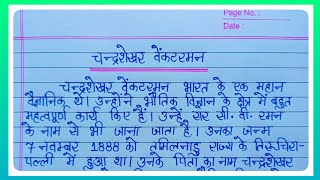 Page No.:
Date:
चन्द्रशेखर वेंकटरमन
चन्द्रशेखर वेंकटरमन भारत के एक महान
वैज्ञानिक थे। उन्होंने भौतिक विज्ञान के क्षेत्र में बहुत
महत्वपूर्ण कार्य किए हैं। उन्हें सर सी. वी. रमन
के नाम से भी जाना जाता है। उनका जन्म
7 नवम्बर 1888 को तमिलनाडु राज्य के तिरूचिरा-
पल्ली में हुआ था। उनके पिता का नाम चन्द्रशेखर